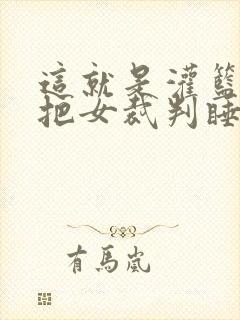 這就是灌籃
把女裁判睡
有馬嵐